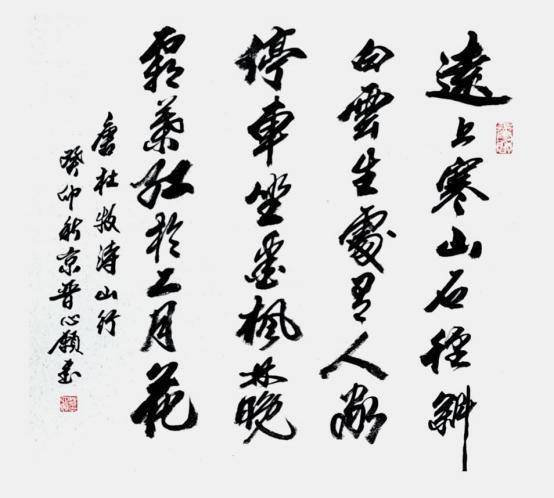 遠上寒山石徑斜
白雲生處有人家
停車坐愛楓林晚
霜葉紅於二月花
唐杜牧詩山行
癸卯秋京晋心願書